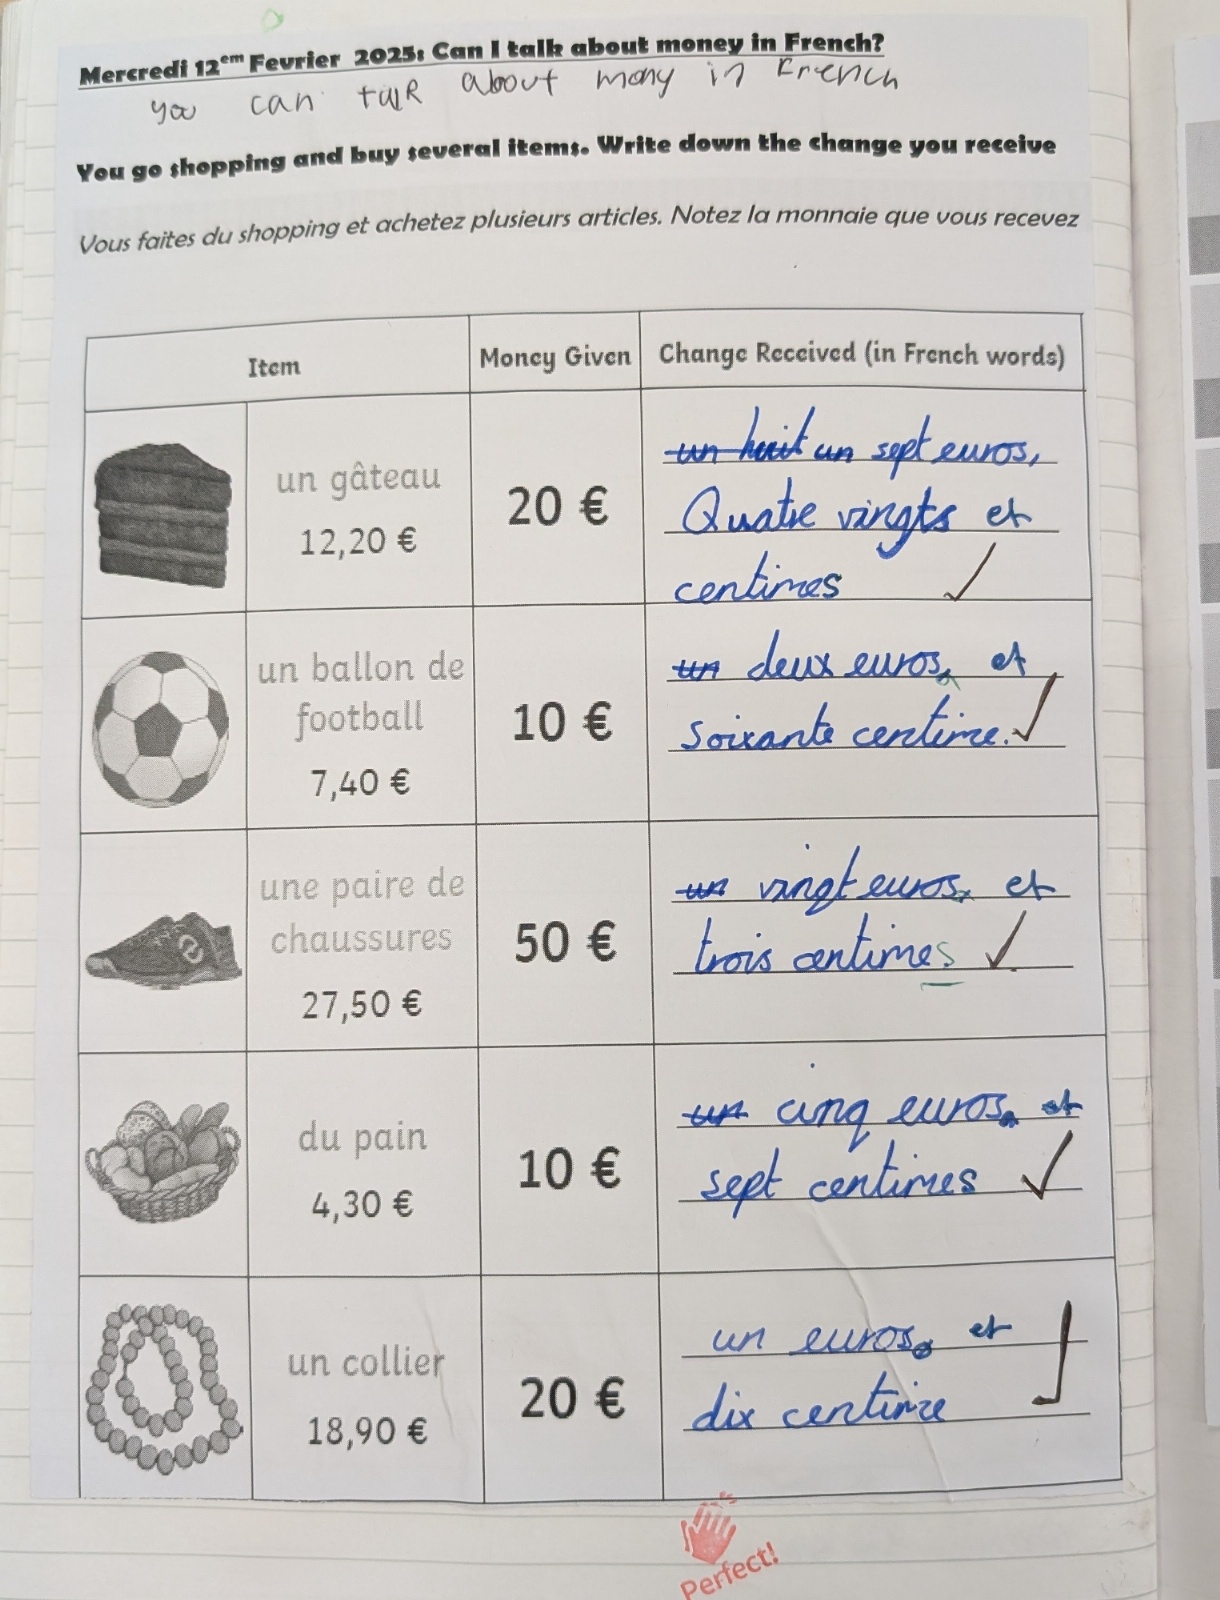 Mercredi 12em Fevrier 2025: Can I talk about money in French?
you can talk about mony in French
You go shopping and buy several items. Write down the change you receive
Vous faites du shopping et achetez plusieurs articles. Notez la monnaie que vous recevez
Item Money Given Change Received (in French words)
un gâteau
12,20 €
20 €
un huit un sept euros,
Quatre vingts et
centimes
un ballon de
football
7,40 €
10 €
un deux euros, et
soixante centime.
une paire de
chaussures
27,50 €
50 €
un vingt euros, et
trois centimes
du pain
4,30 €
10 €
un cinq euros, et
sept centimes
un collier
18,90 €
20 €
un euros, et
dix centime
Perfect!